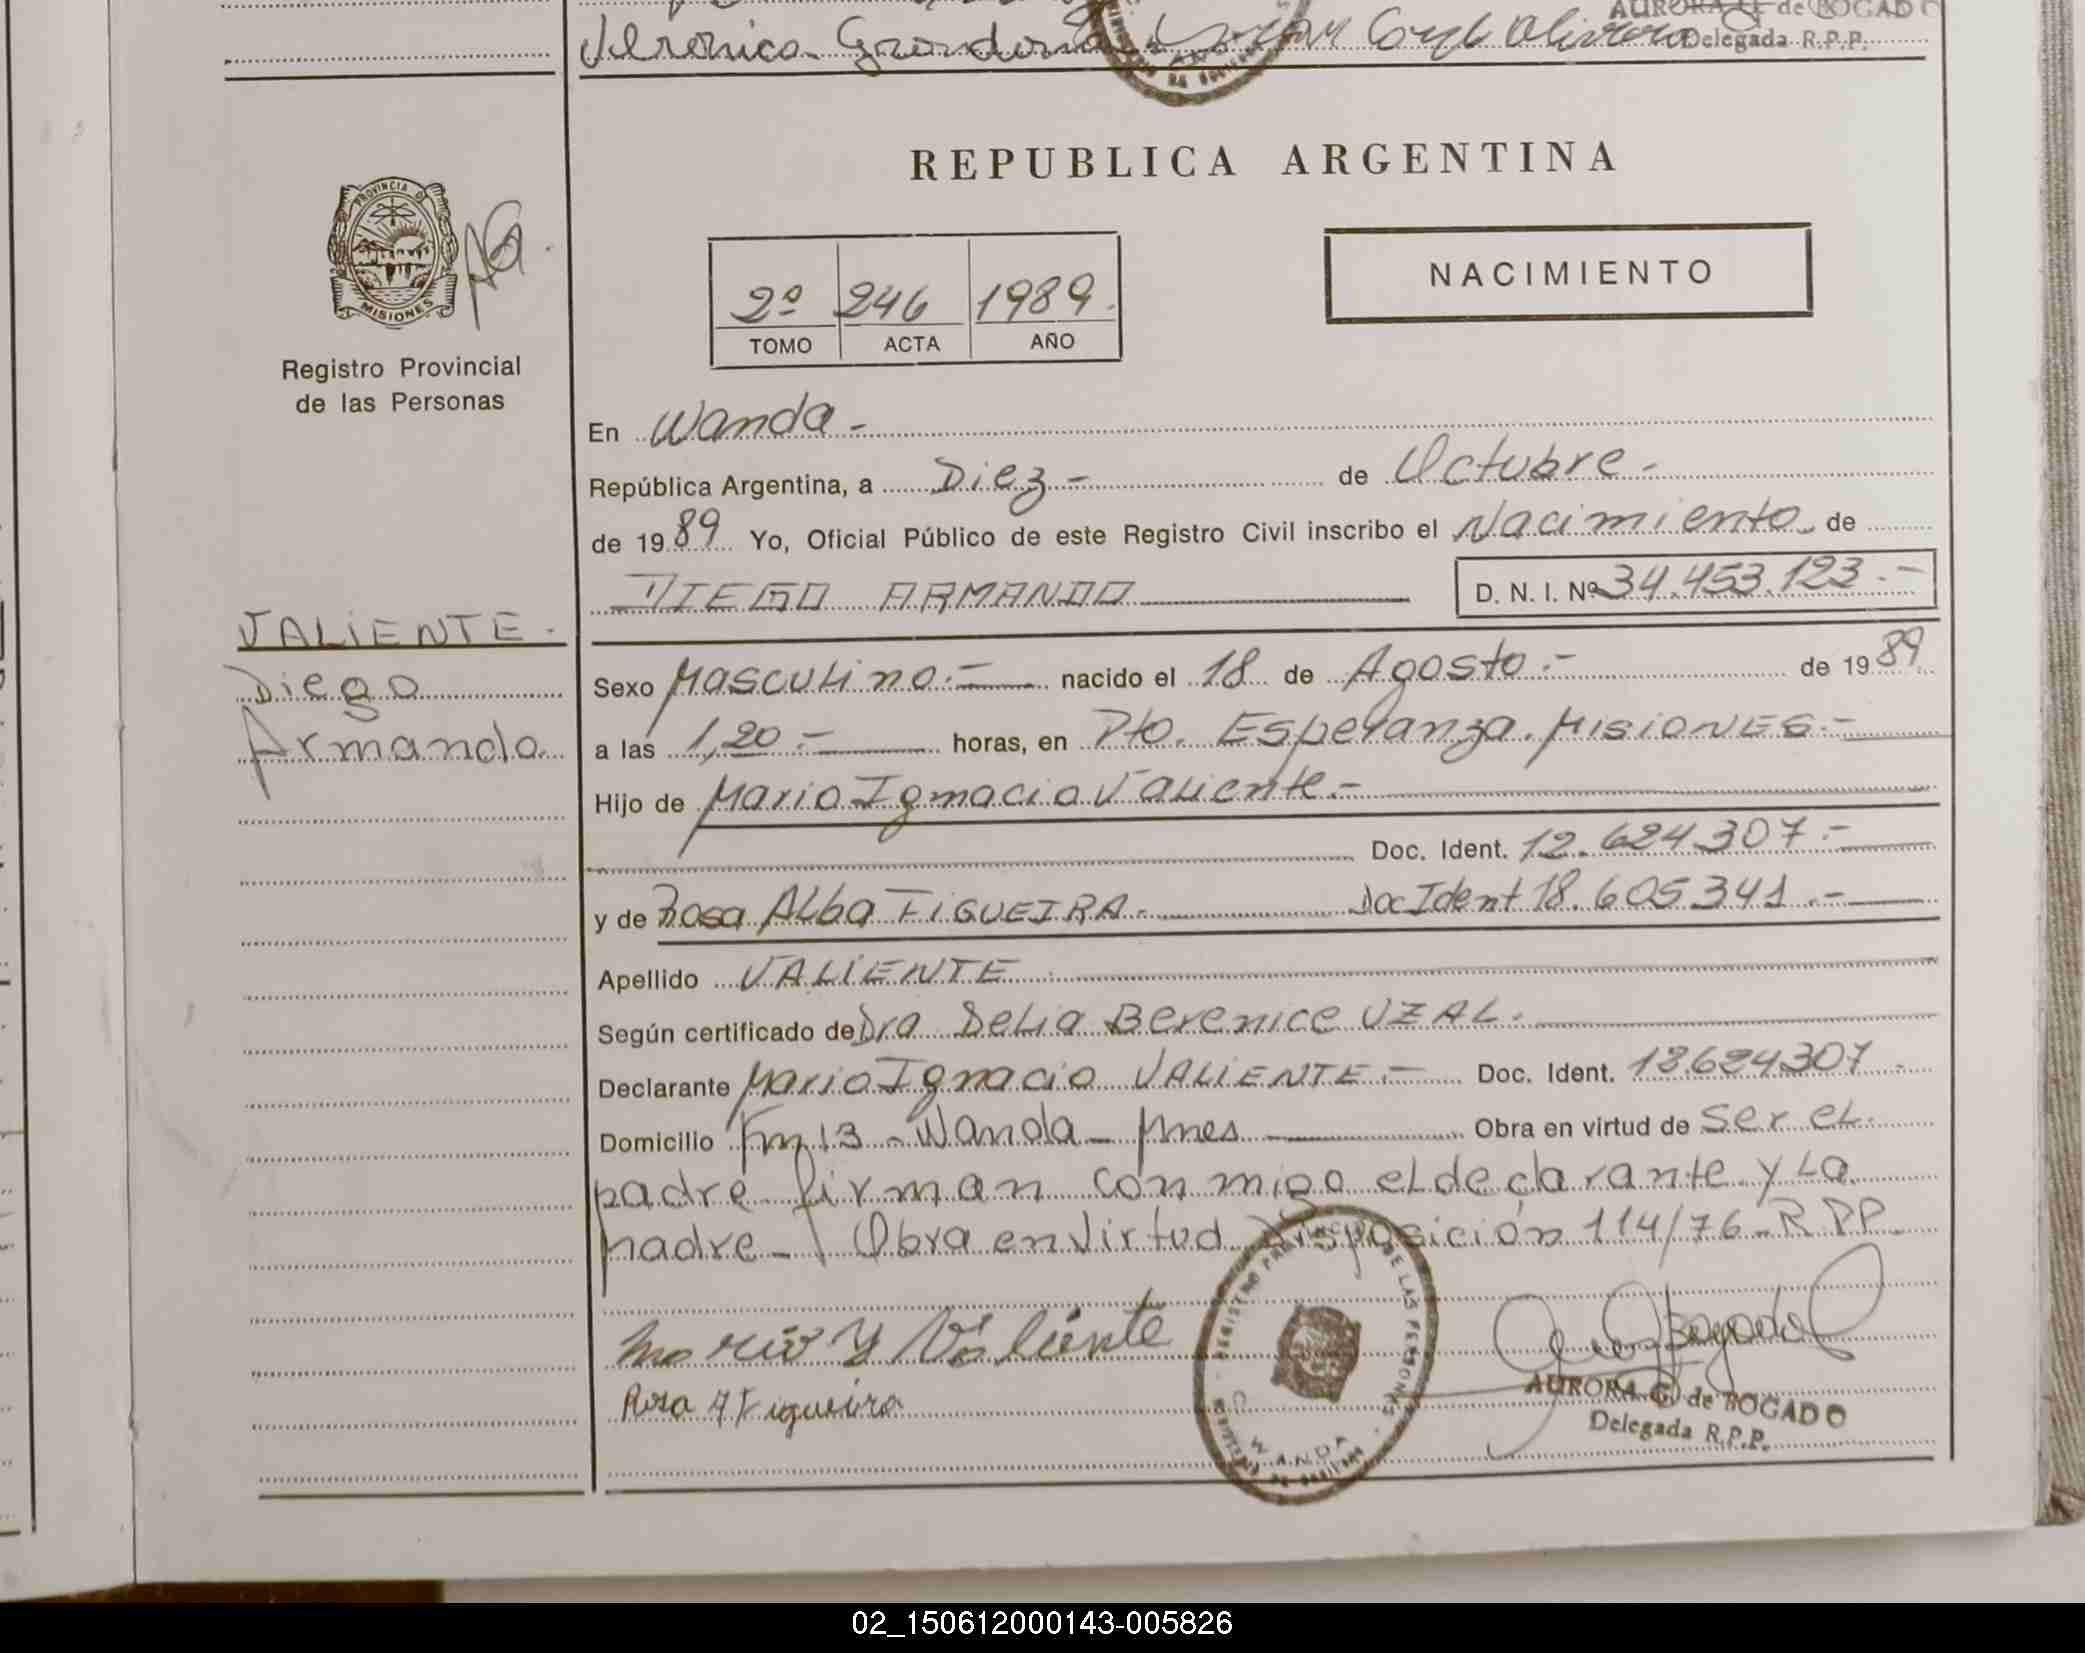 AURORA G. de BOGADO
Veronica
Delegada R.P.P.
REPUBLICA ARGENTINA
PROVINCIA DE
MISIONES
AG.
NACIMIENTO
2º 246 1989.
TOMO ACTA AÑO
Registro Provincial
de las Personas
En Wanda -
República Argentina, a Diez - de Octubre -
de 1989 Yo, Oficial Público de este Registro Civil inscribo el Nacimiento de
DIEGO ARMANDO D. N. I. Nº 34.453.123.-
VALIENTE.
Diego
Armando
Sexo Masculino.- nacido el 18 de Agosto.- de 1989
a las 1,20.- horas, en Pto. Esperanza. MISIONES.-
Hijo de Mario Ignacio Valiente.-
Doc. Ident. 12.624.307.-
y de Rosa Alba FIGUEIRA.- Doc Ident 18.605.341.-
Apellido VALIENTE.
Según certificado de Dra Delia Berenice UZAL.
Declarante Mario Ignacio VALIENTE.- Doc. Ident. 12.624307.-
Domicilio Km 13 - Wanda - Mnes Obra en virtud de ser el
padre firman conmigo el declarante y la
madre - Obra en virtud Disposición 114/76 - RPP
Mario Y Valiente
Rosa A Figueira
REGISTRO PROVINCIAL DE LAS PERSONAS
WANDA
AURORA G. de BOGADO
Delegada R.P.P.
02_150612000143-005826